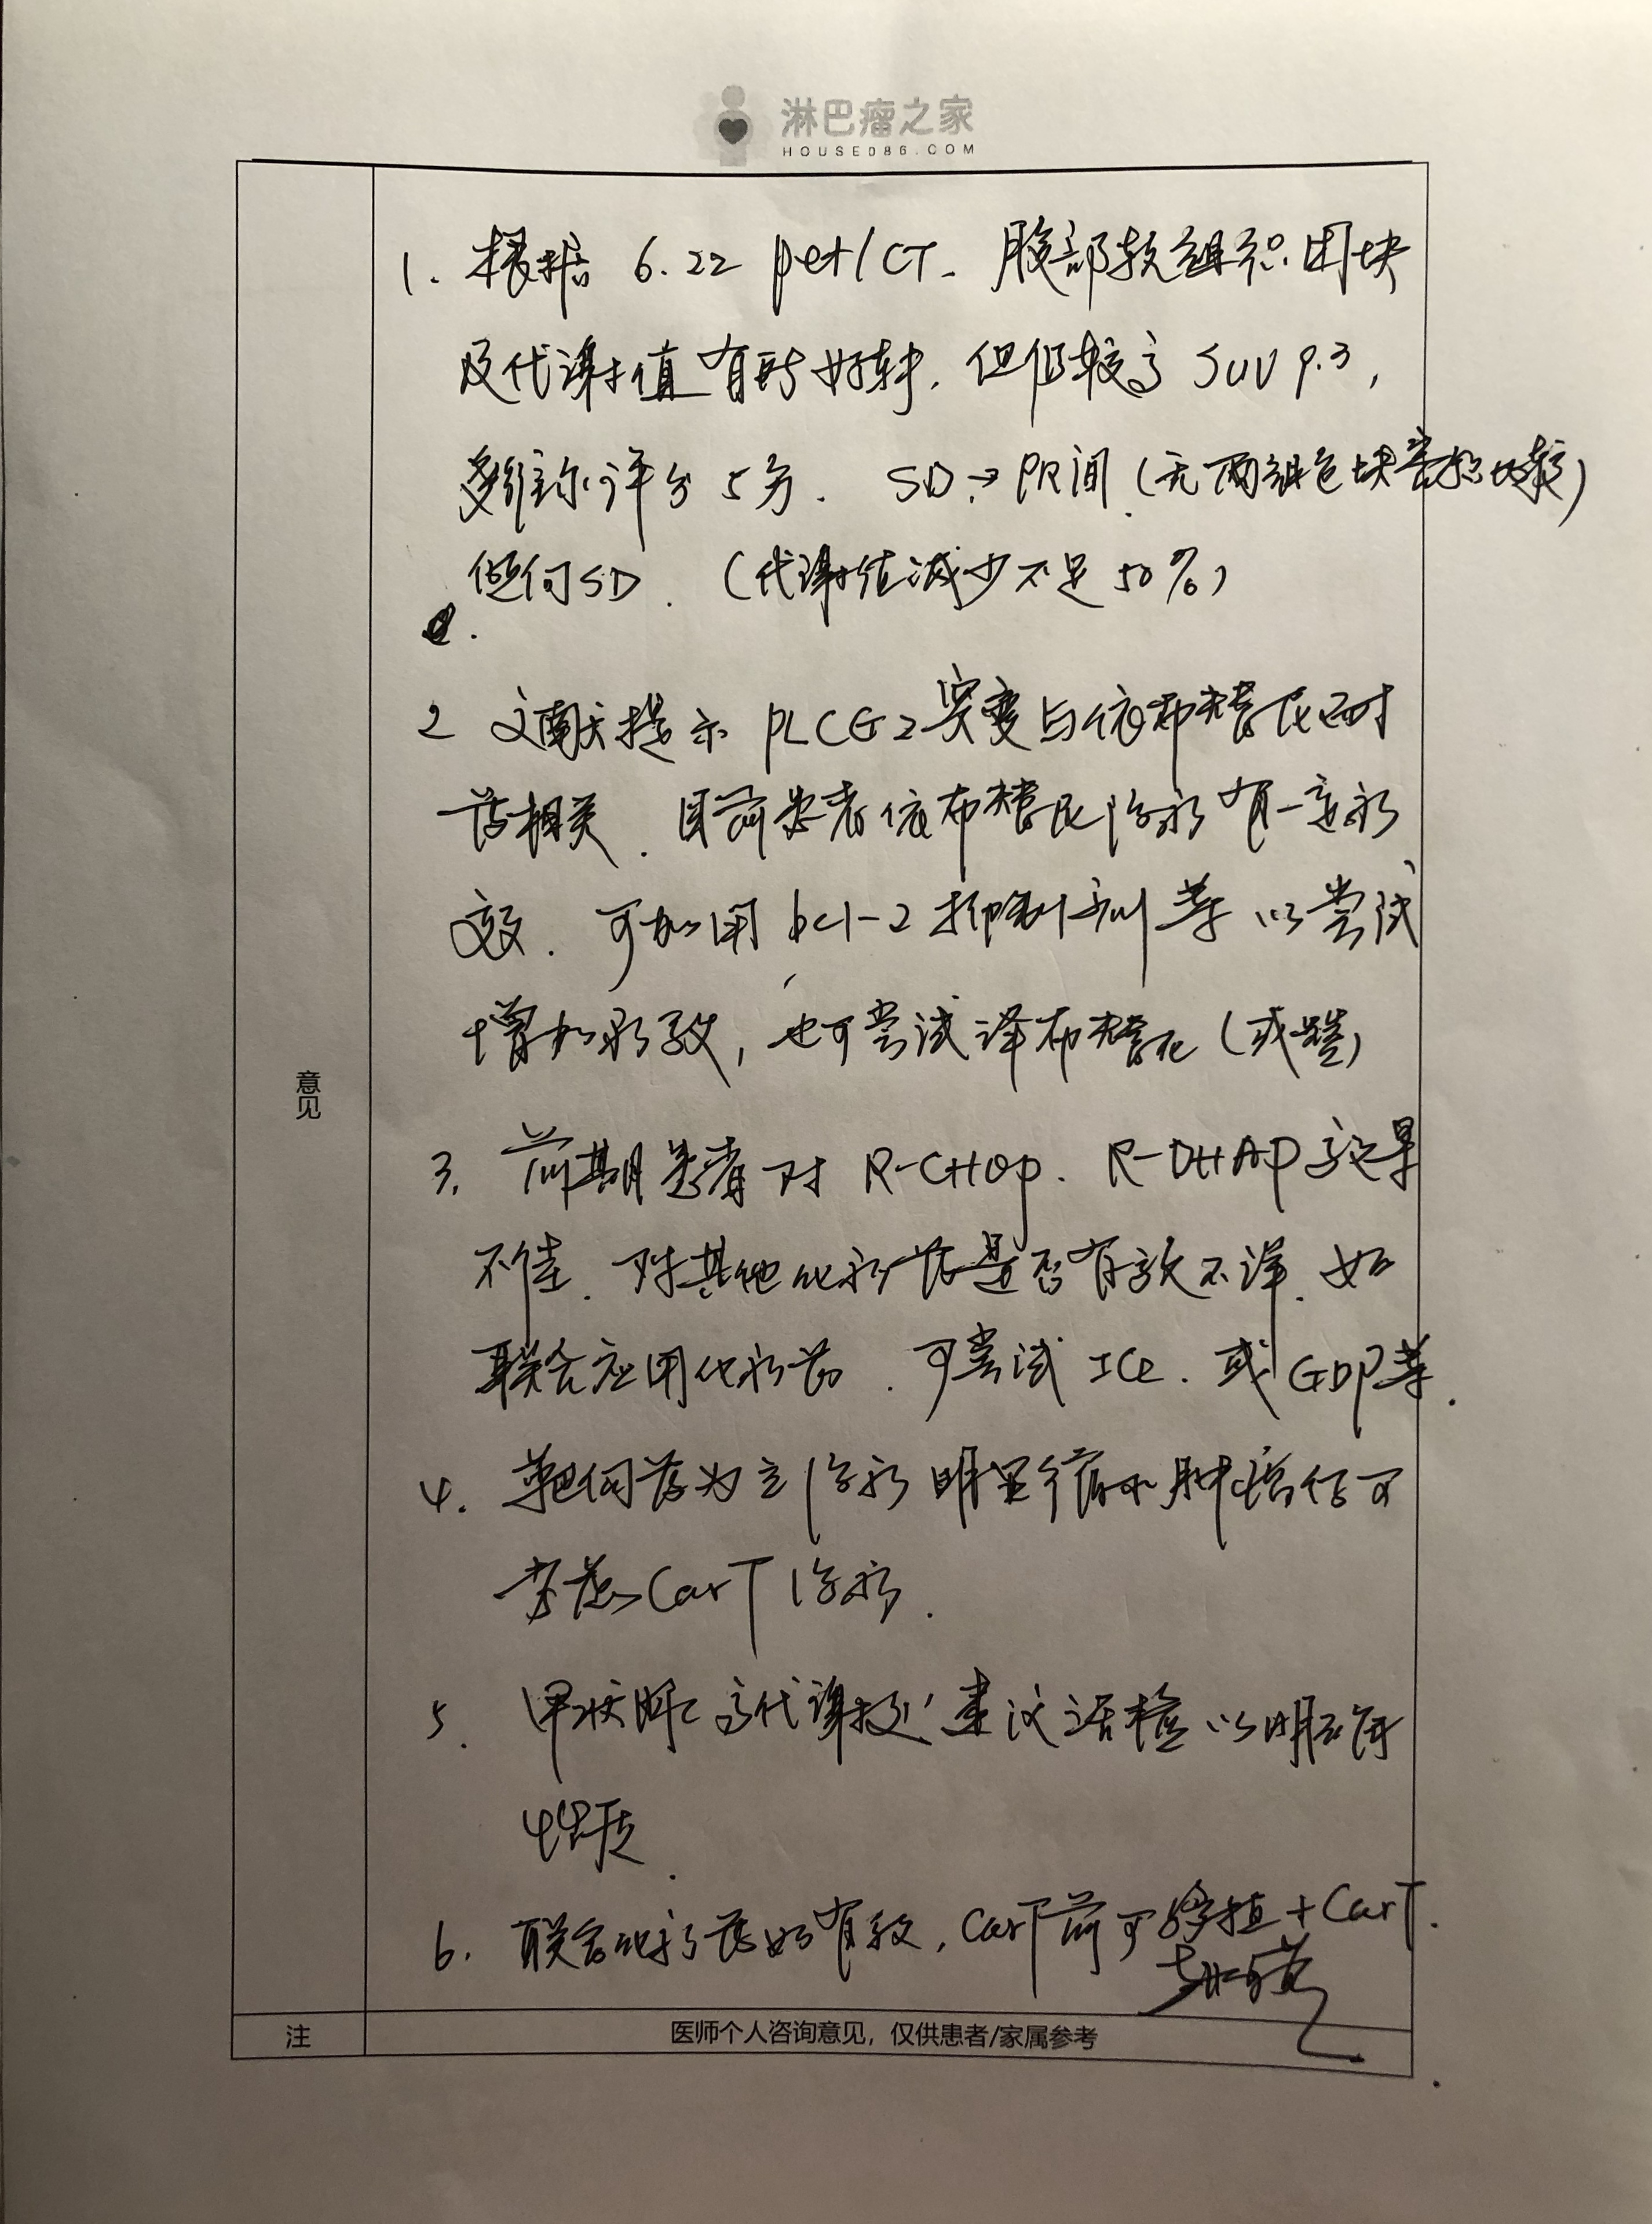 淋巴瘤之家
HOUSE086.COM
1. 根据 6.22 pet/CT. 腹部软组织团块
及代谢值有所好转. 但仍较高 SUV 9.3,
多维尔评分 5分. SD → PR间 (无两组包块 比较)
倾向SD. (代谢值减少不足50%)
2 文献提示 PLCG2突变与依布替尼耐
药相关. 目前患者依布替尼治疗有一定疗
效. 可加用 bcl-2 抑制剂等以尝试
增加疗效, 也可尝试泽布替尼 (或)
意见
3. 前期患者对 R-CHOP. R-DHAP 效果
不佳. 对其他化疗药是否有效不详. 如
联合应用化疗药. 可尝试 ICE. 或 GDP等.
4. 靶向药为主治疗明显缩小肿瘤后可
考虑CarT治疗.
5. 甲状腺高代谢 建议活检以明确
性质.
6. 联合化疗药如有效, CarT前可 移植 + CarT.
注
医师个人咨询意见，仅供患者/家属参考